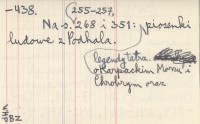 -438. 255-257,
Na s. 268 i 351: piosenki
ludowe z Podhala.
legendy tatrz.
o Karpackim Morzu i
Chrobrym oraz